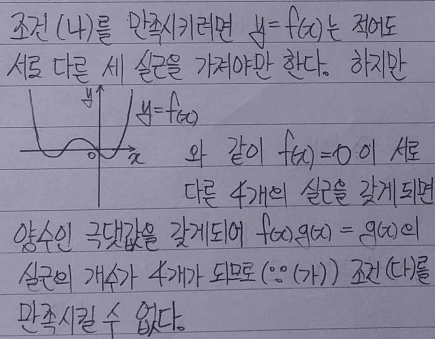 조건 (나)를 만족시키려면 y=f(x)는 적어도
서로 다른 세 실근을 가져야만 한다. 하지만
y
y=f(x)
0 x
와 같이 f(x)=0 이 서로
다른 4개의 실근을 갖게 되면
양수인 극댓값을 갖게되어 f(x)g(x) = g(x)의
실근의 개수가 4개가 되므로 (∵ (가)) 조건 (다)를
만족시킬 수 없다.